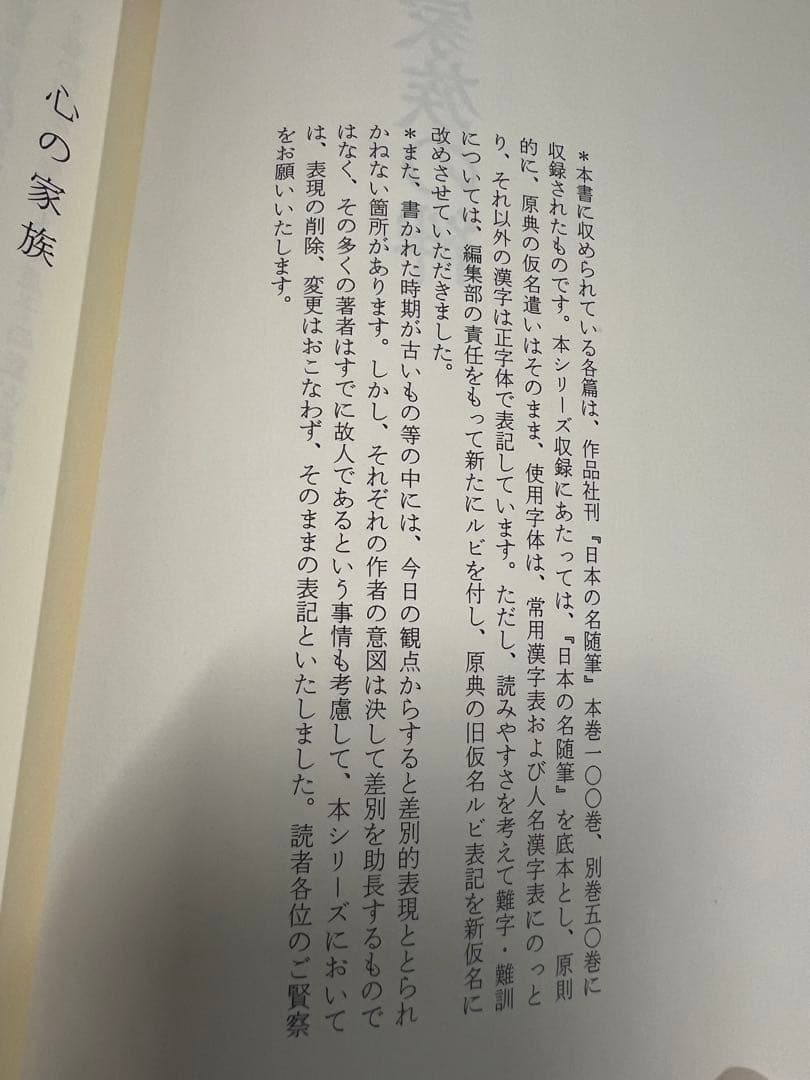 *本書に収められている各篇は、作品社刊『日本の名随筆』本巻一〇〇巻、別巻五〇巻に
収録されたものです。本シリーズ収録にあたっては、『日本の名随筆』を底本とし、原則
的に、原典の仮名遣いはそのまま、使用字体は、常用漢字表および人名漢字表にのっと
り、それ以外の漢字は正字体で表記しています。ただし、読みやすさを考えて難字・難訓
については、編集部の責任をもって新たにルビを付し、原典の旧仮名ルビ表記を新仮名に
改めさせていただきました。
*また、書かれた時期が古いもの等の中には、今日の観点からすると差別的表現ととられ
かねない箇所があります。しかし、それぞれの作者の意図は決して差別を助長するもので
はなく、その多くの著者はすでに故人であるという事情も考慮して、本シリーズにおいて
は、表現の削除、変更はおこなわず、そのままの表記といたしました。読者各位のご賢察
をお願いいたします。
心の家族